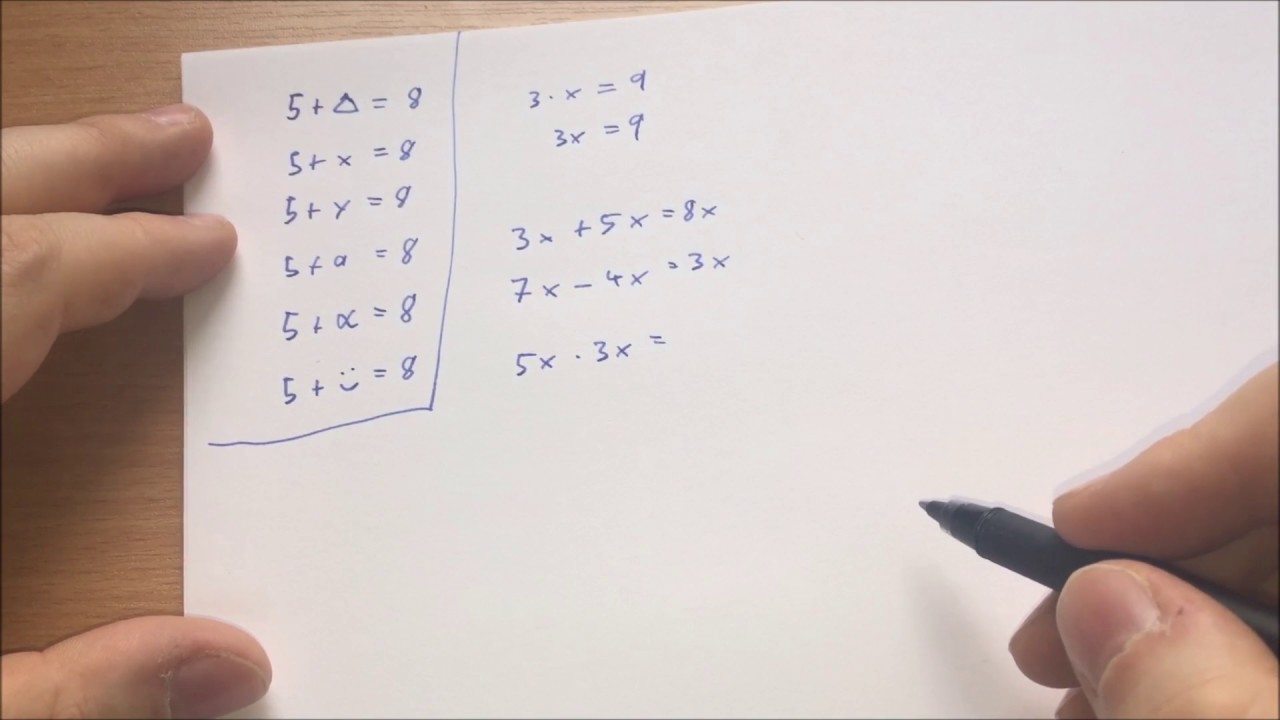 5 + △ = 8
5 + x = 8
5 + y = 8
5 + a = 8
5 + α = 8
5 + ⍨ = 8
3 · x = 9
3x = 9
3x + 5x = 8x
7x - 4x = 3x
5x · 3x =